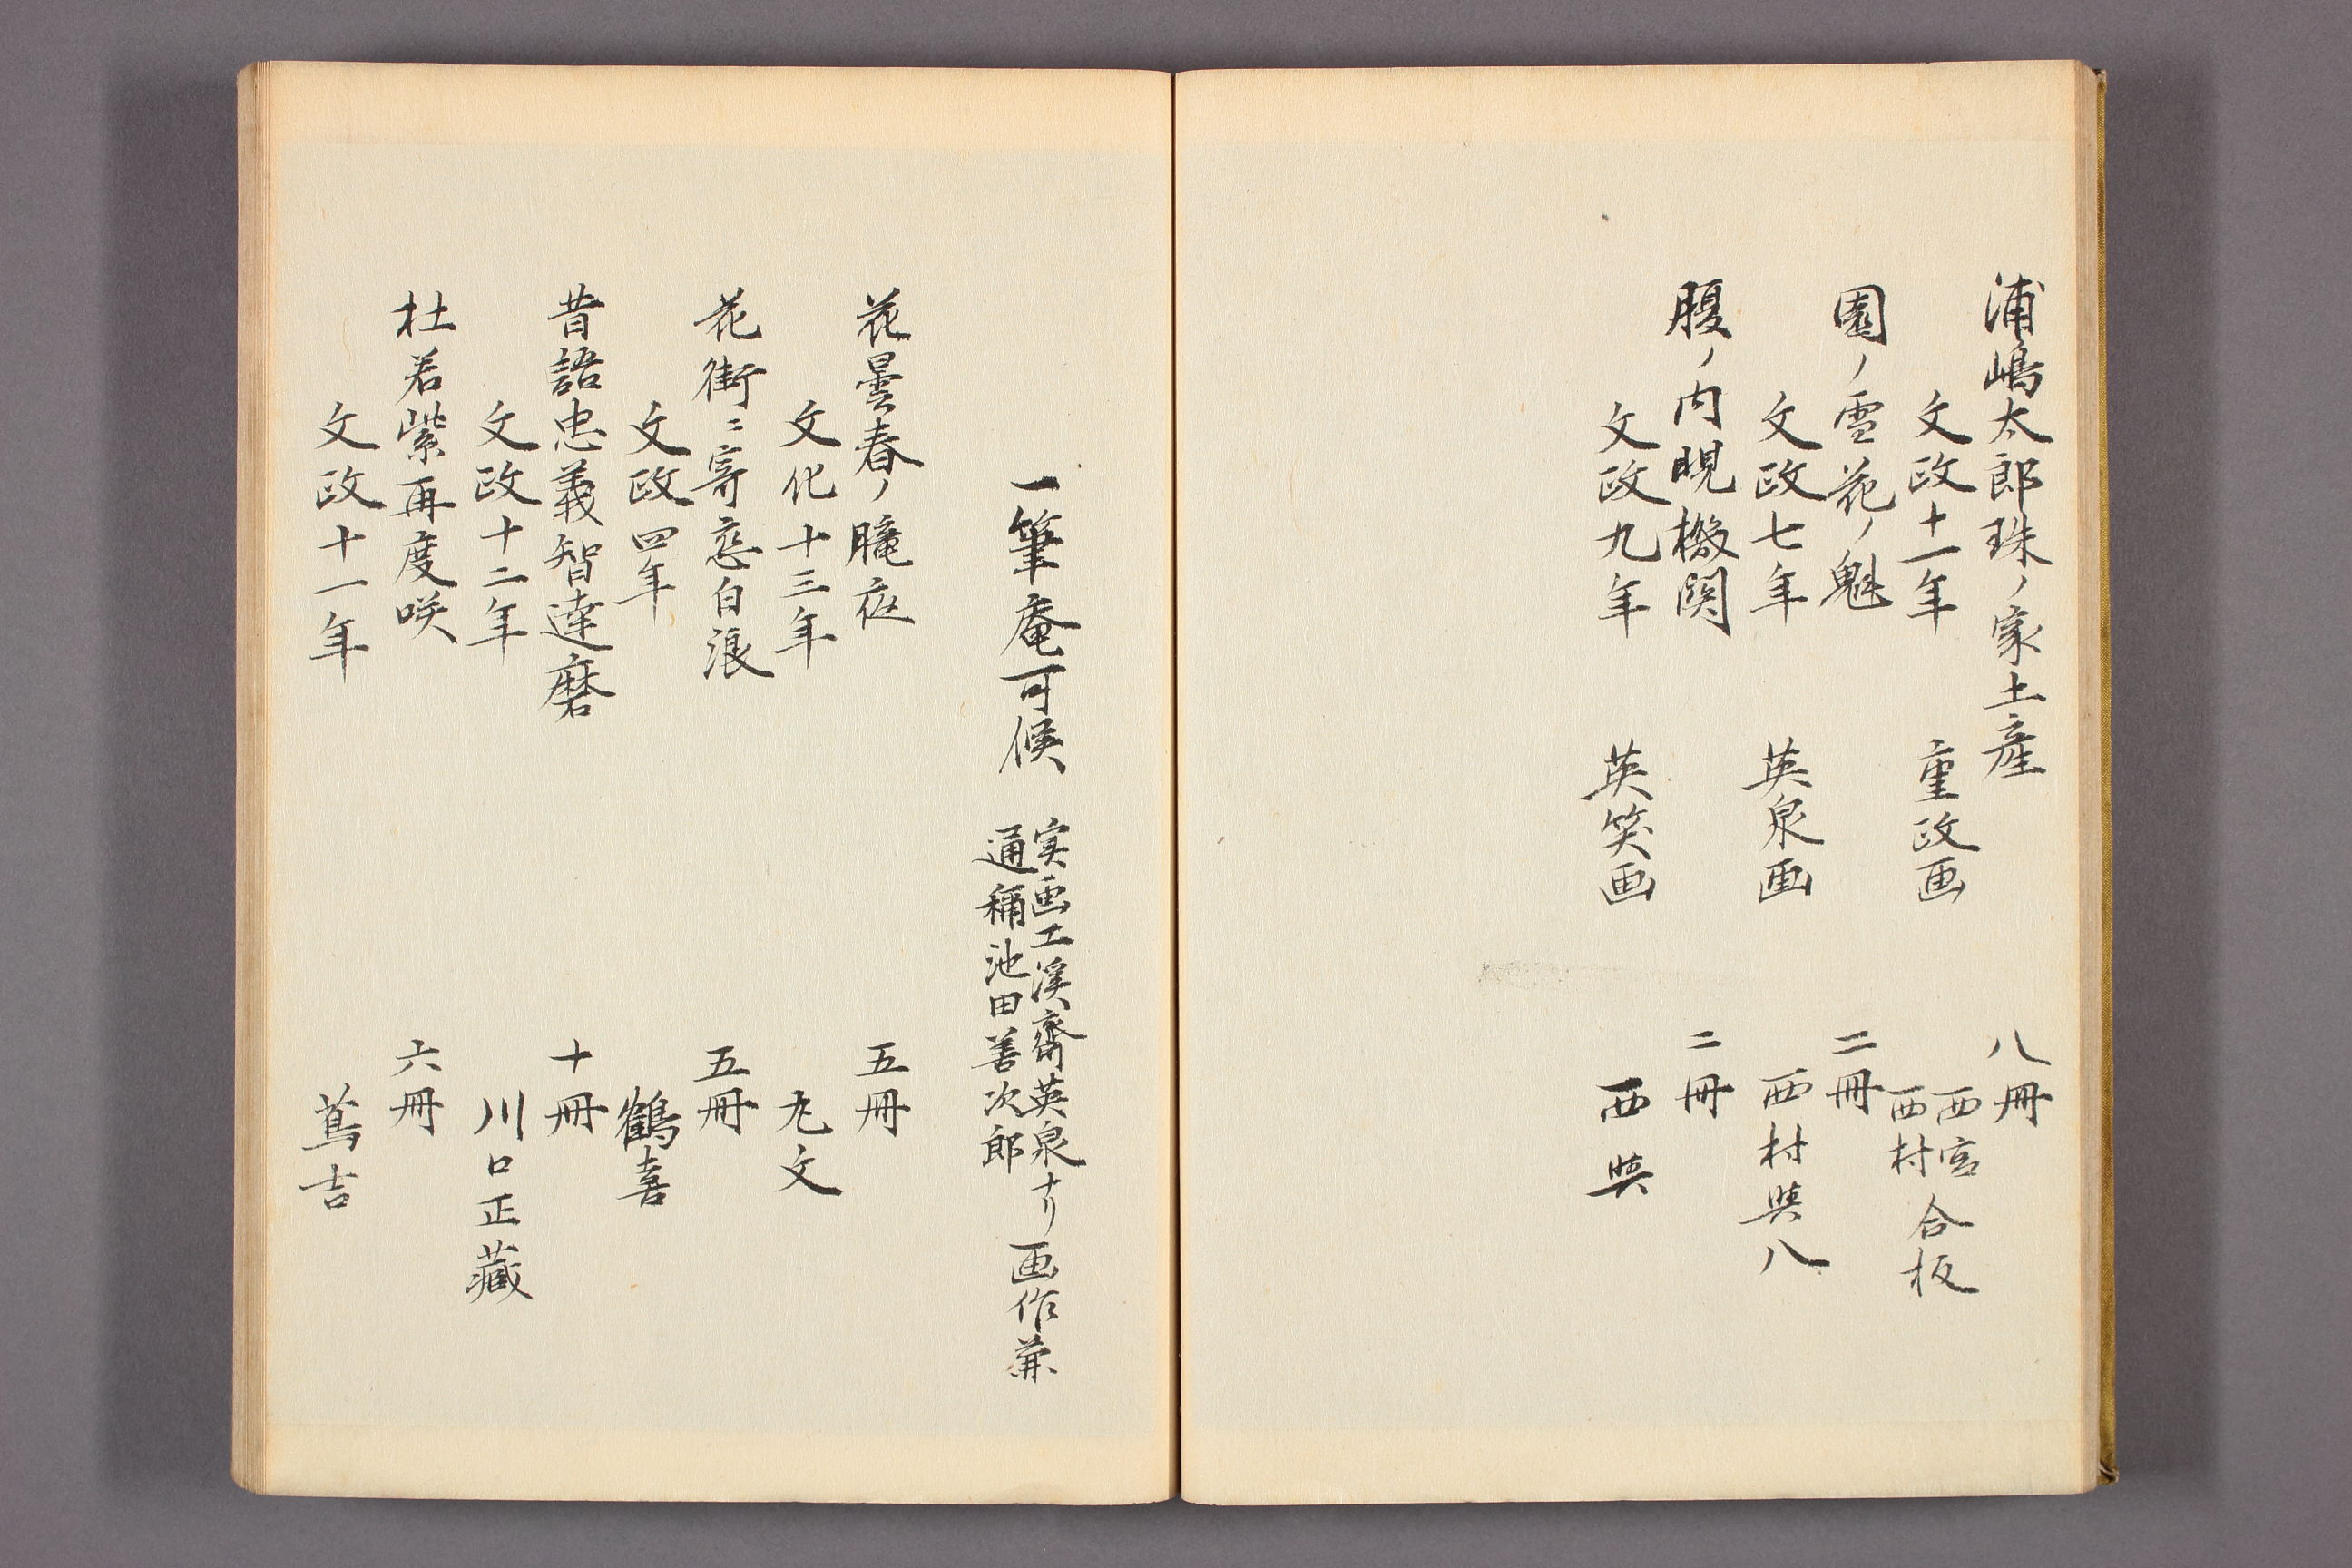 浦嶋太郎珠ノ家土産 八冊
文政十一年 重政画 西宮 西村 合板
園ノ雪花ノ魁 二冊
文政七年 英泉画 西村與八
腹ノ内覗機関 二冊
文政九年 英笑画 西與
一筆庵可候 実画工渓齋英泉ナリ 通稱池田善次郎 画作兼
花曇春ノ朧夜 五冊
文化十三年 丸文
花街ニ寄恋白浪 五冊
文政四年 鶴喜
昔語忠義智達磨 十冊
文政十二年 川口正藏
杜若紫再度咲 六冊
文政十一年 蔦吉